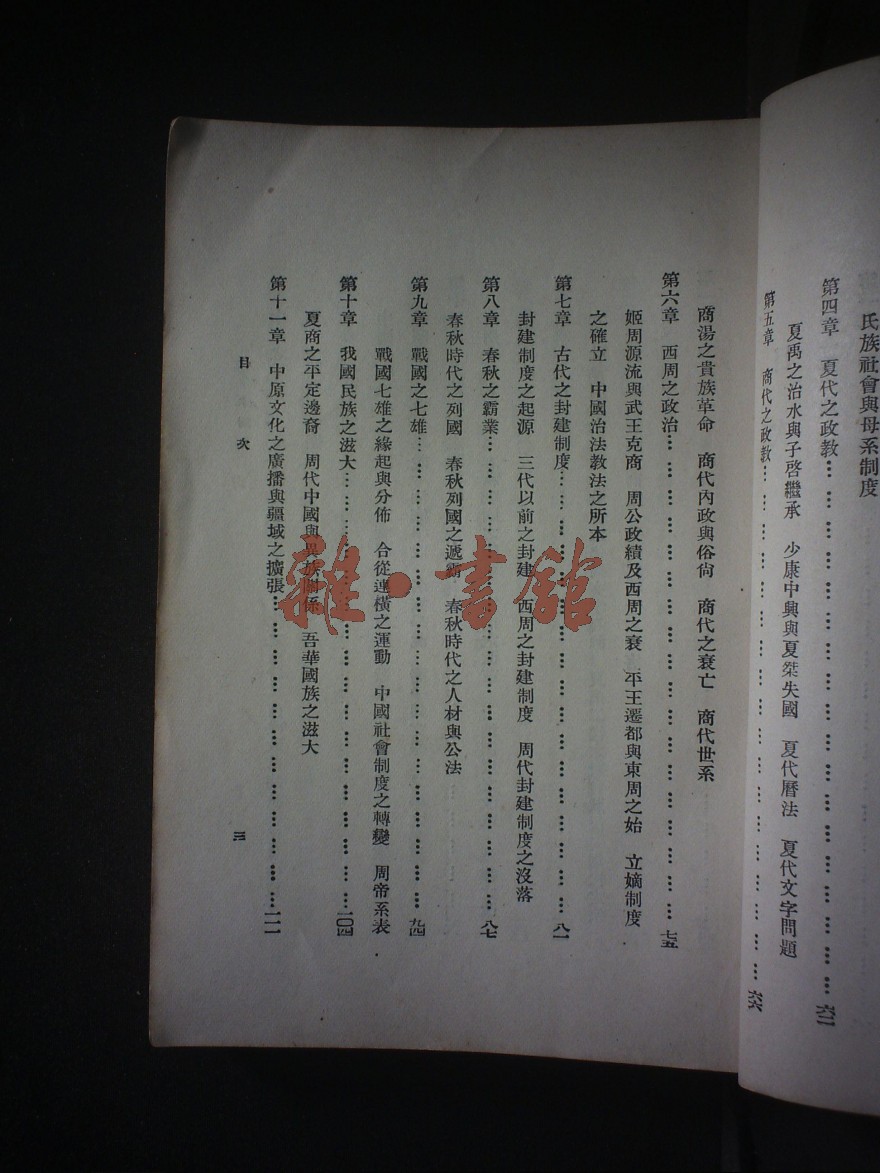 氏族社會與母系制度
第四章　夏代之政教…………………………六二
夏禹之治水與子啓繼承　少康中興與夏桀失國　夏代曆法　夏代文字問題
第五章　商代之政教…………………………六六
商湯之貴族革命　商代內政與俗尙　商代之衰亡　商代世系
第六章　西周之政治…………………………七五
姬周源流與武王克商　周公政績及西周之衰　平王遷都與東周之始　立嫡制度
之確立　中國治法教法之所本
第七章　古代之封建制度…………………………八一
封建制度之起源　三代以前之封建　西周之封建制度　周代封建制度之沒落
第八章　春秋之霸業…………………………八七
春秋時代之列國　春秋列國之遞霸　春秋時代之人材與公法
第九章　戰國之七雄…………………………九四
戰國七雄之緣起與分佈　合從連橫之運動　中國社會制度之轉變　周帝系表
第十章　我國民族之滋大…………………………一〇四
夏商之平定邊裔　周代中國與異族關係　吾華國族之滋大
第十一章　中原文化之廣播與疆域之擴張…………………………一一一
目次
三
雜·書館